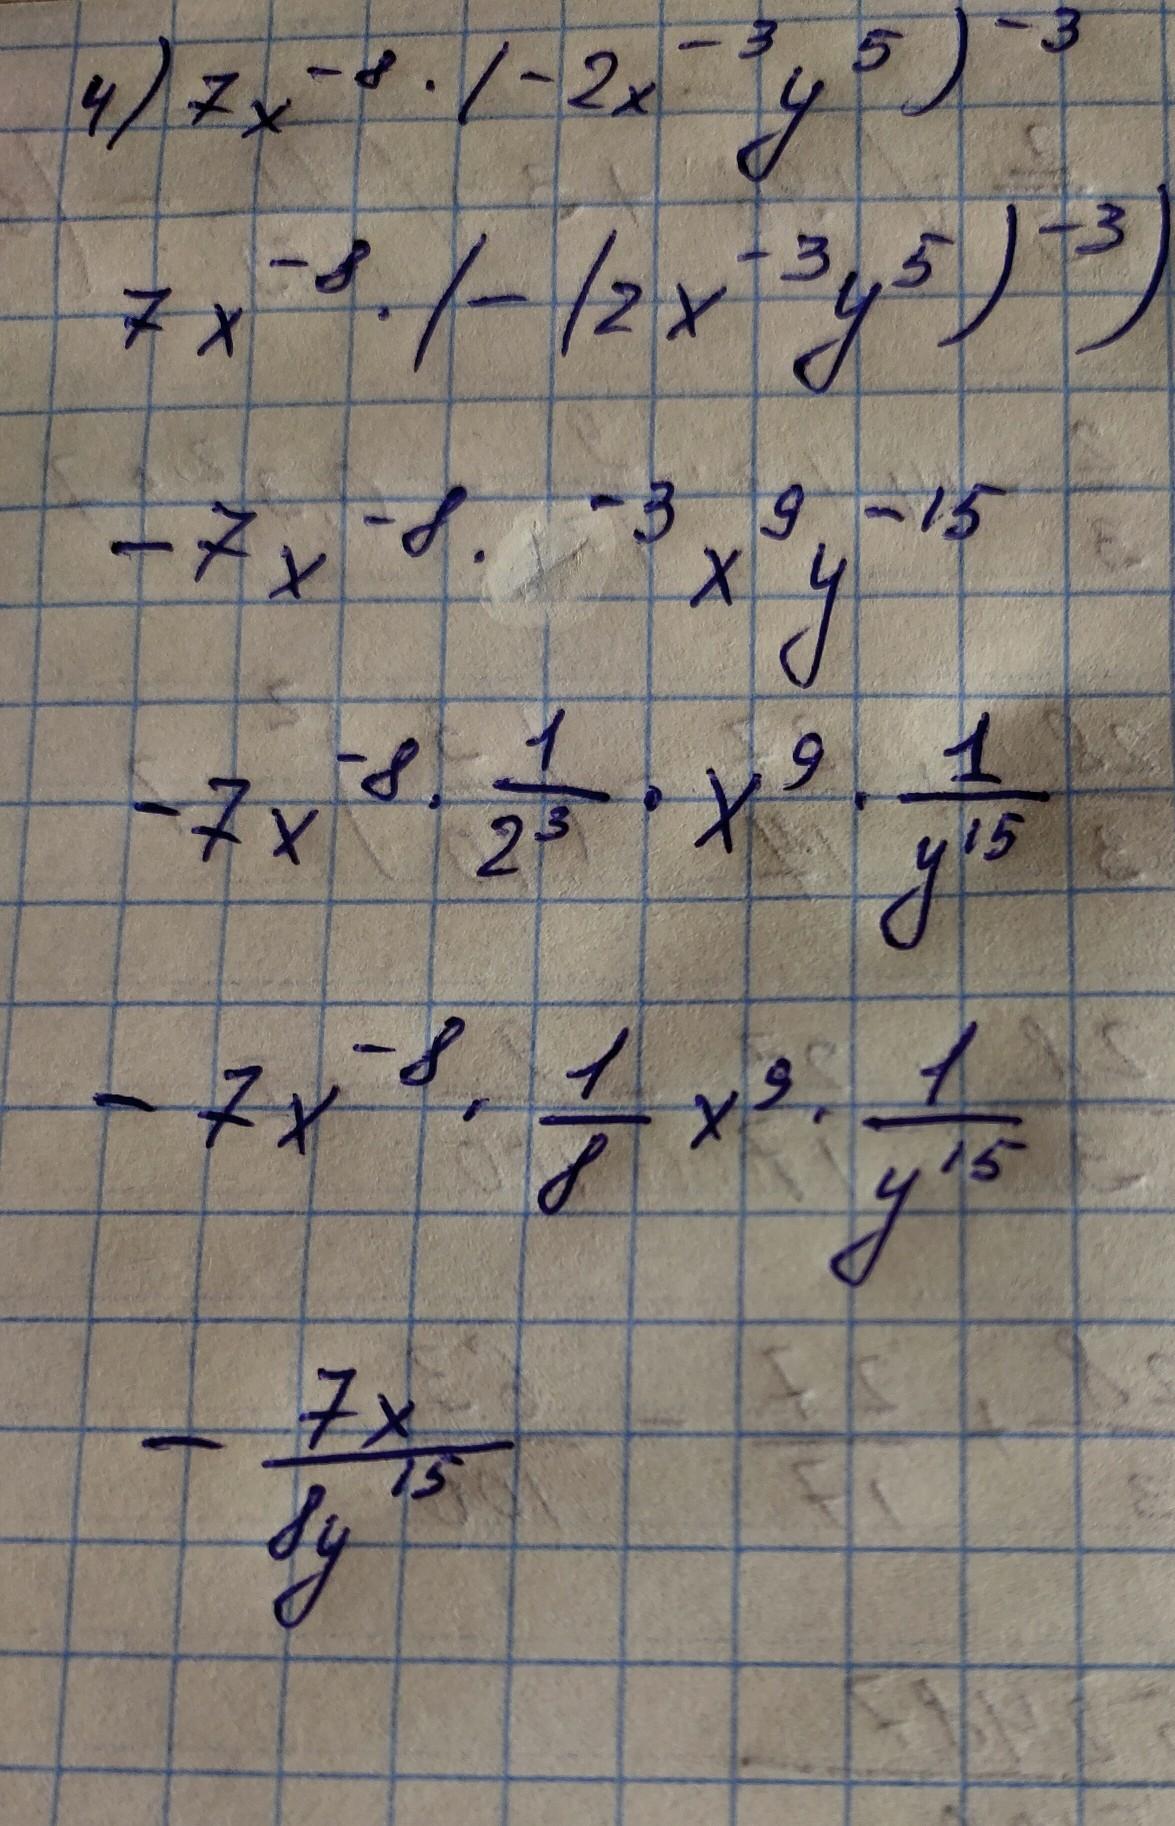 4) 7x⁻⁸ · (-2x⁻³y⁵)⁻³
7x⁻⁸ · (-(2x⁻³y⁵)⁻³)
-7x⁻⁸ · ⁻³x⁹y⁻¹⁵
-7x⁻⁸ · 1/2³ · x⁹ · 1/y¹⁵
-7x⁻⁸ · 1/8 x⁹ · 1/y¹⁵
- 7x/8y¹⁵